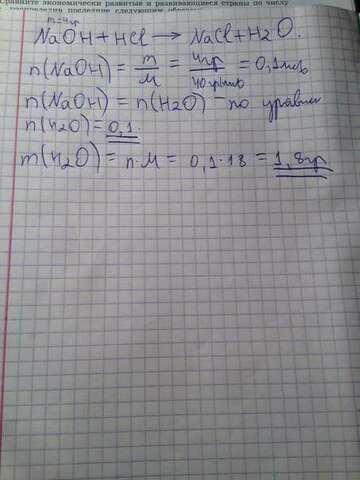 Сравните экономически развитые и развивающиеся страны по числу
последние следующим
m=4гр
NaOH + HCl → NaCl + H2O.
n(NaOH) = m/M = 4гр/40гр/моль = 0,1моль
n(NaOH) = n(H2O) - по уравнен
n(H2O) = 0,1.
m(H2O) = n·M = 0,1·18 = 1,8гр